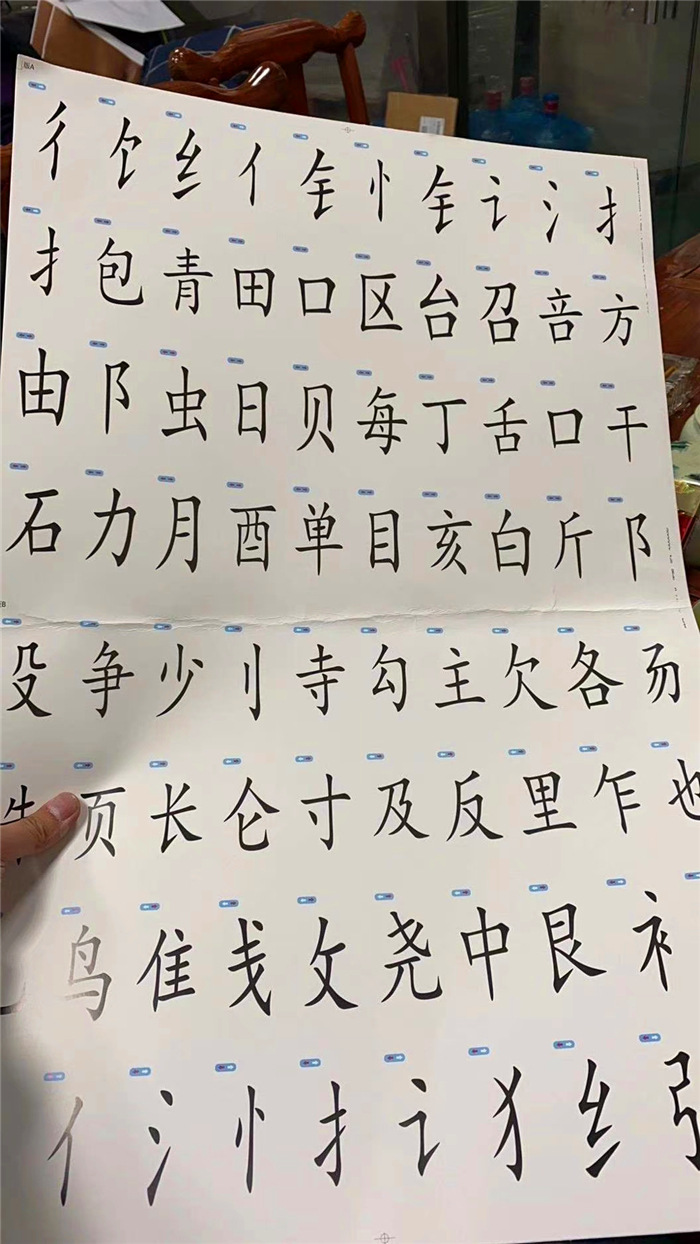 彳 饣 纟 亻 钅 忄 钅 讠 氵 扌
扌 包 青 田 口 区 台 召 咅 方
由 阝 虫 日 贝 每 丁 舌 口 干
石 力 月 酉 单 目 亥 白 斤 阝
殳 争 少 刂 寺 勾 主 欠 各
页 长 仑 寸 及 反 里 乍 也
鸟 隹 戋 攵 尧 中 艮 衤
亻 氵 忄 扌 讠 犭 纟 弓